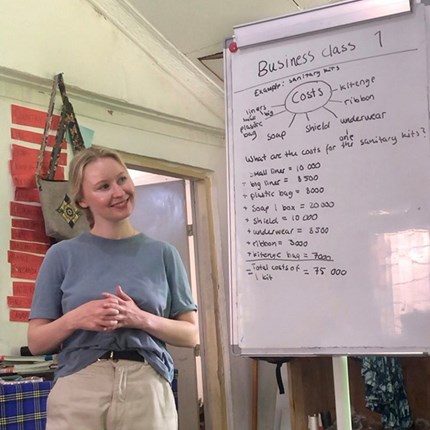 Business class 1
Example: sanitary kits
Costs
kitenge
ribbon
underwear
shield
soap
plastic bag
liners
big
What are the costs for one of the sanitary kits?
small liner = 10 000
+ big liner = 8 500
+ plastic bag = 8000
+ soap 1 box = 20 000
+ shield = 10 000
+ underwear =
+ ribbon = 3000
+ kitenge bag = 7000
= Total costs of 1 kit = 75 000